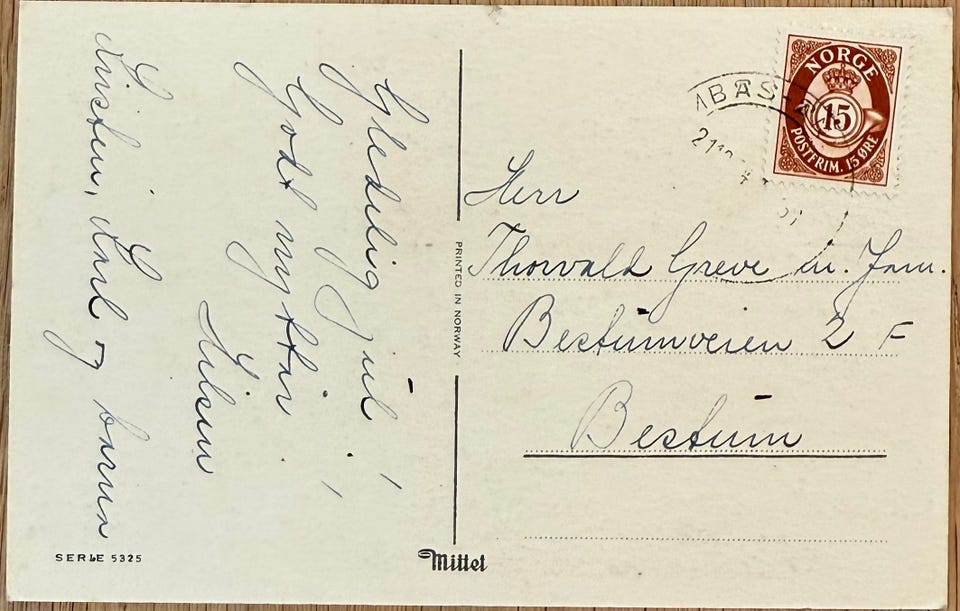 Gledelig jul!
Godt nyttår!
Hilsen
Kirsten, Karl og barna
SERIE 5325
PRINTED IN NORWAY
Mittet
NORGE
15
POSTFRIM. 15 ØRE
Herr
Thorvald Greve m. fam.
Bestumveien 2 F
Bestum